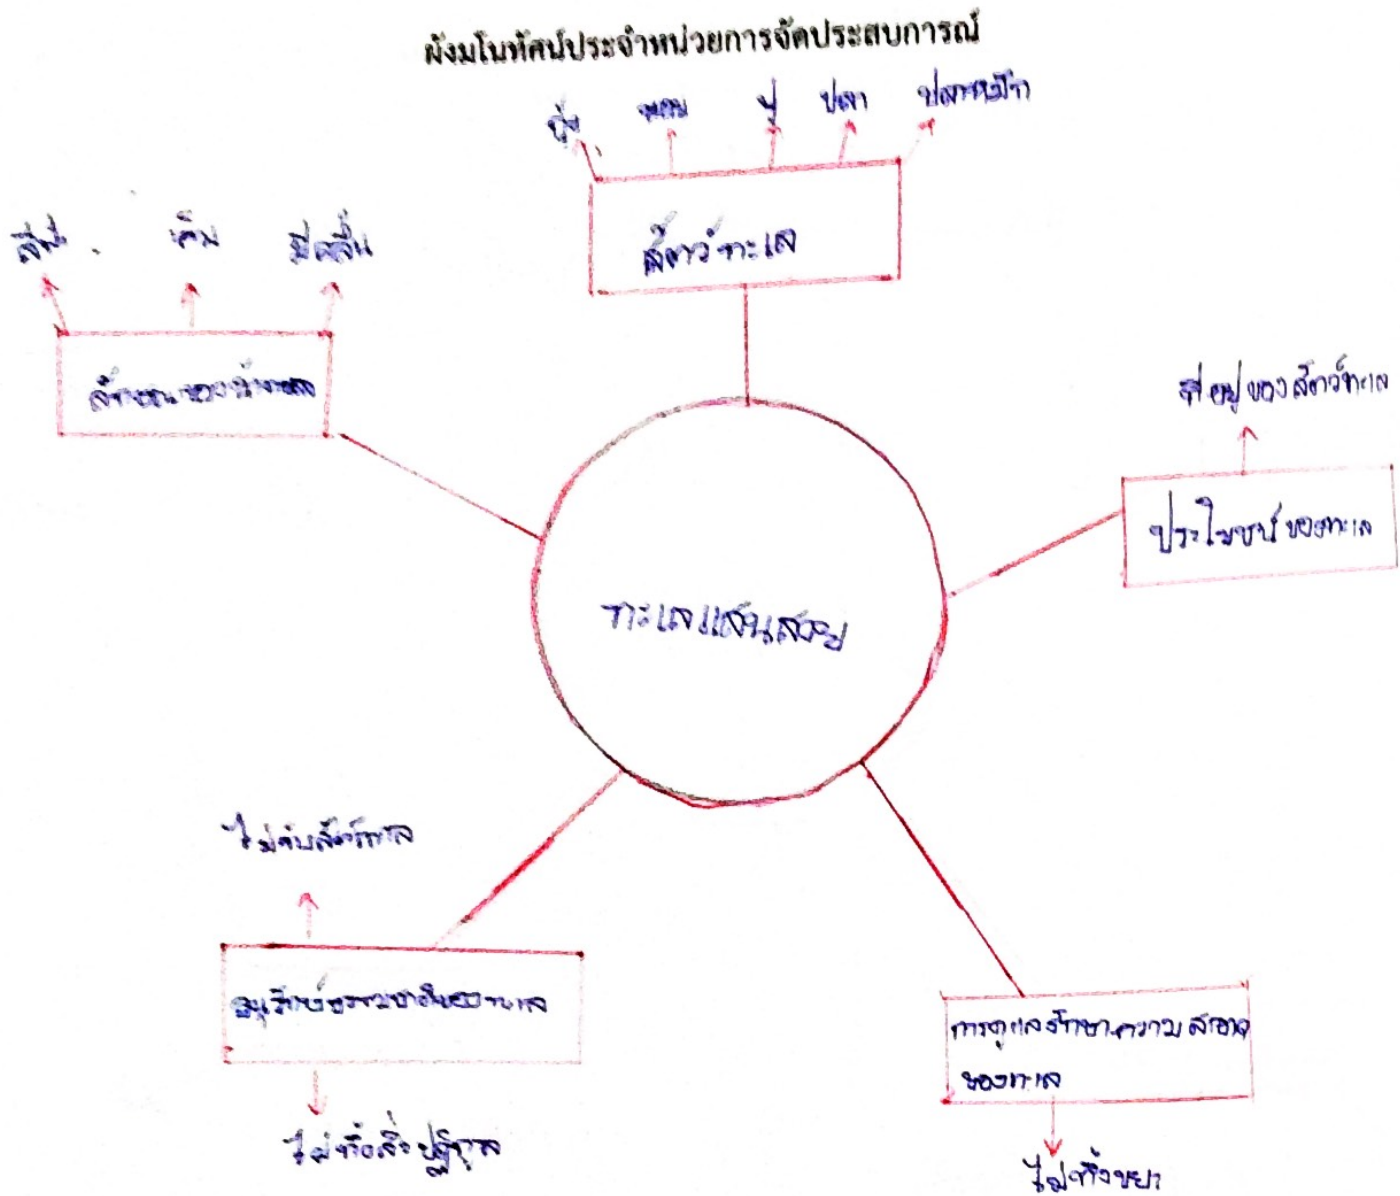 ผังมโนทัศน์ประจำหน่วยการจัดประสบการณ์
กุ้ง หอย ปู ปลา ปลาหมึก
สัตว์ทะเล
สีฟ้า เค็ม มีคลื่น
ลักษณะของน้ำทะเล
ที่อยู่ของสัตว์ทะเล
ประโยชน์ของทะเล
ทะเลแสนสวย
ไม่จับสัตว์ทะเล
อนุรักษ์ธรรมชาติของทะเล
ไม่ทิ้งสิ่งปฏิกูล
การดูแลรักษาความสะอาด
ของทะเล
ไม่ทิ้งขยะ